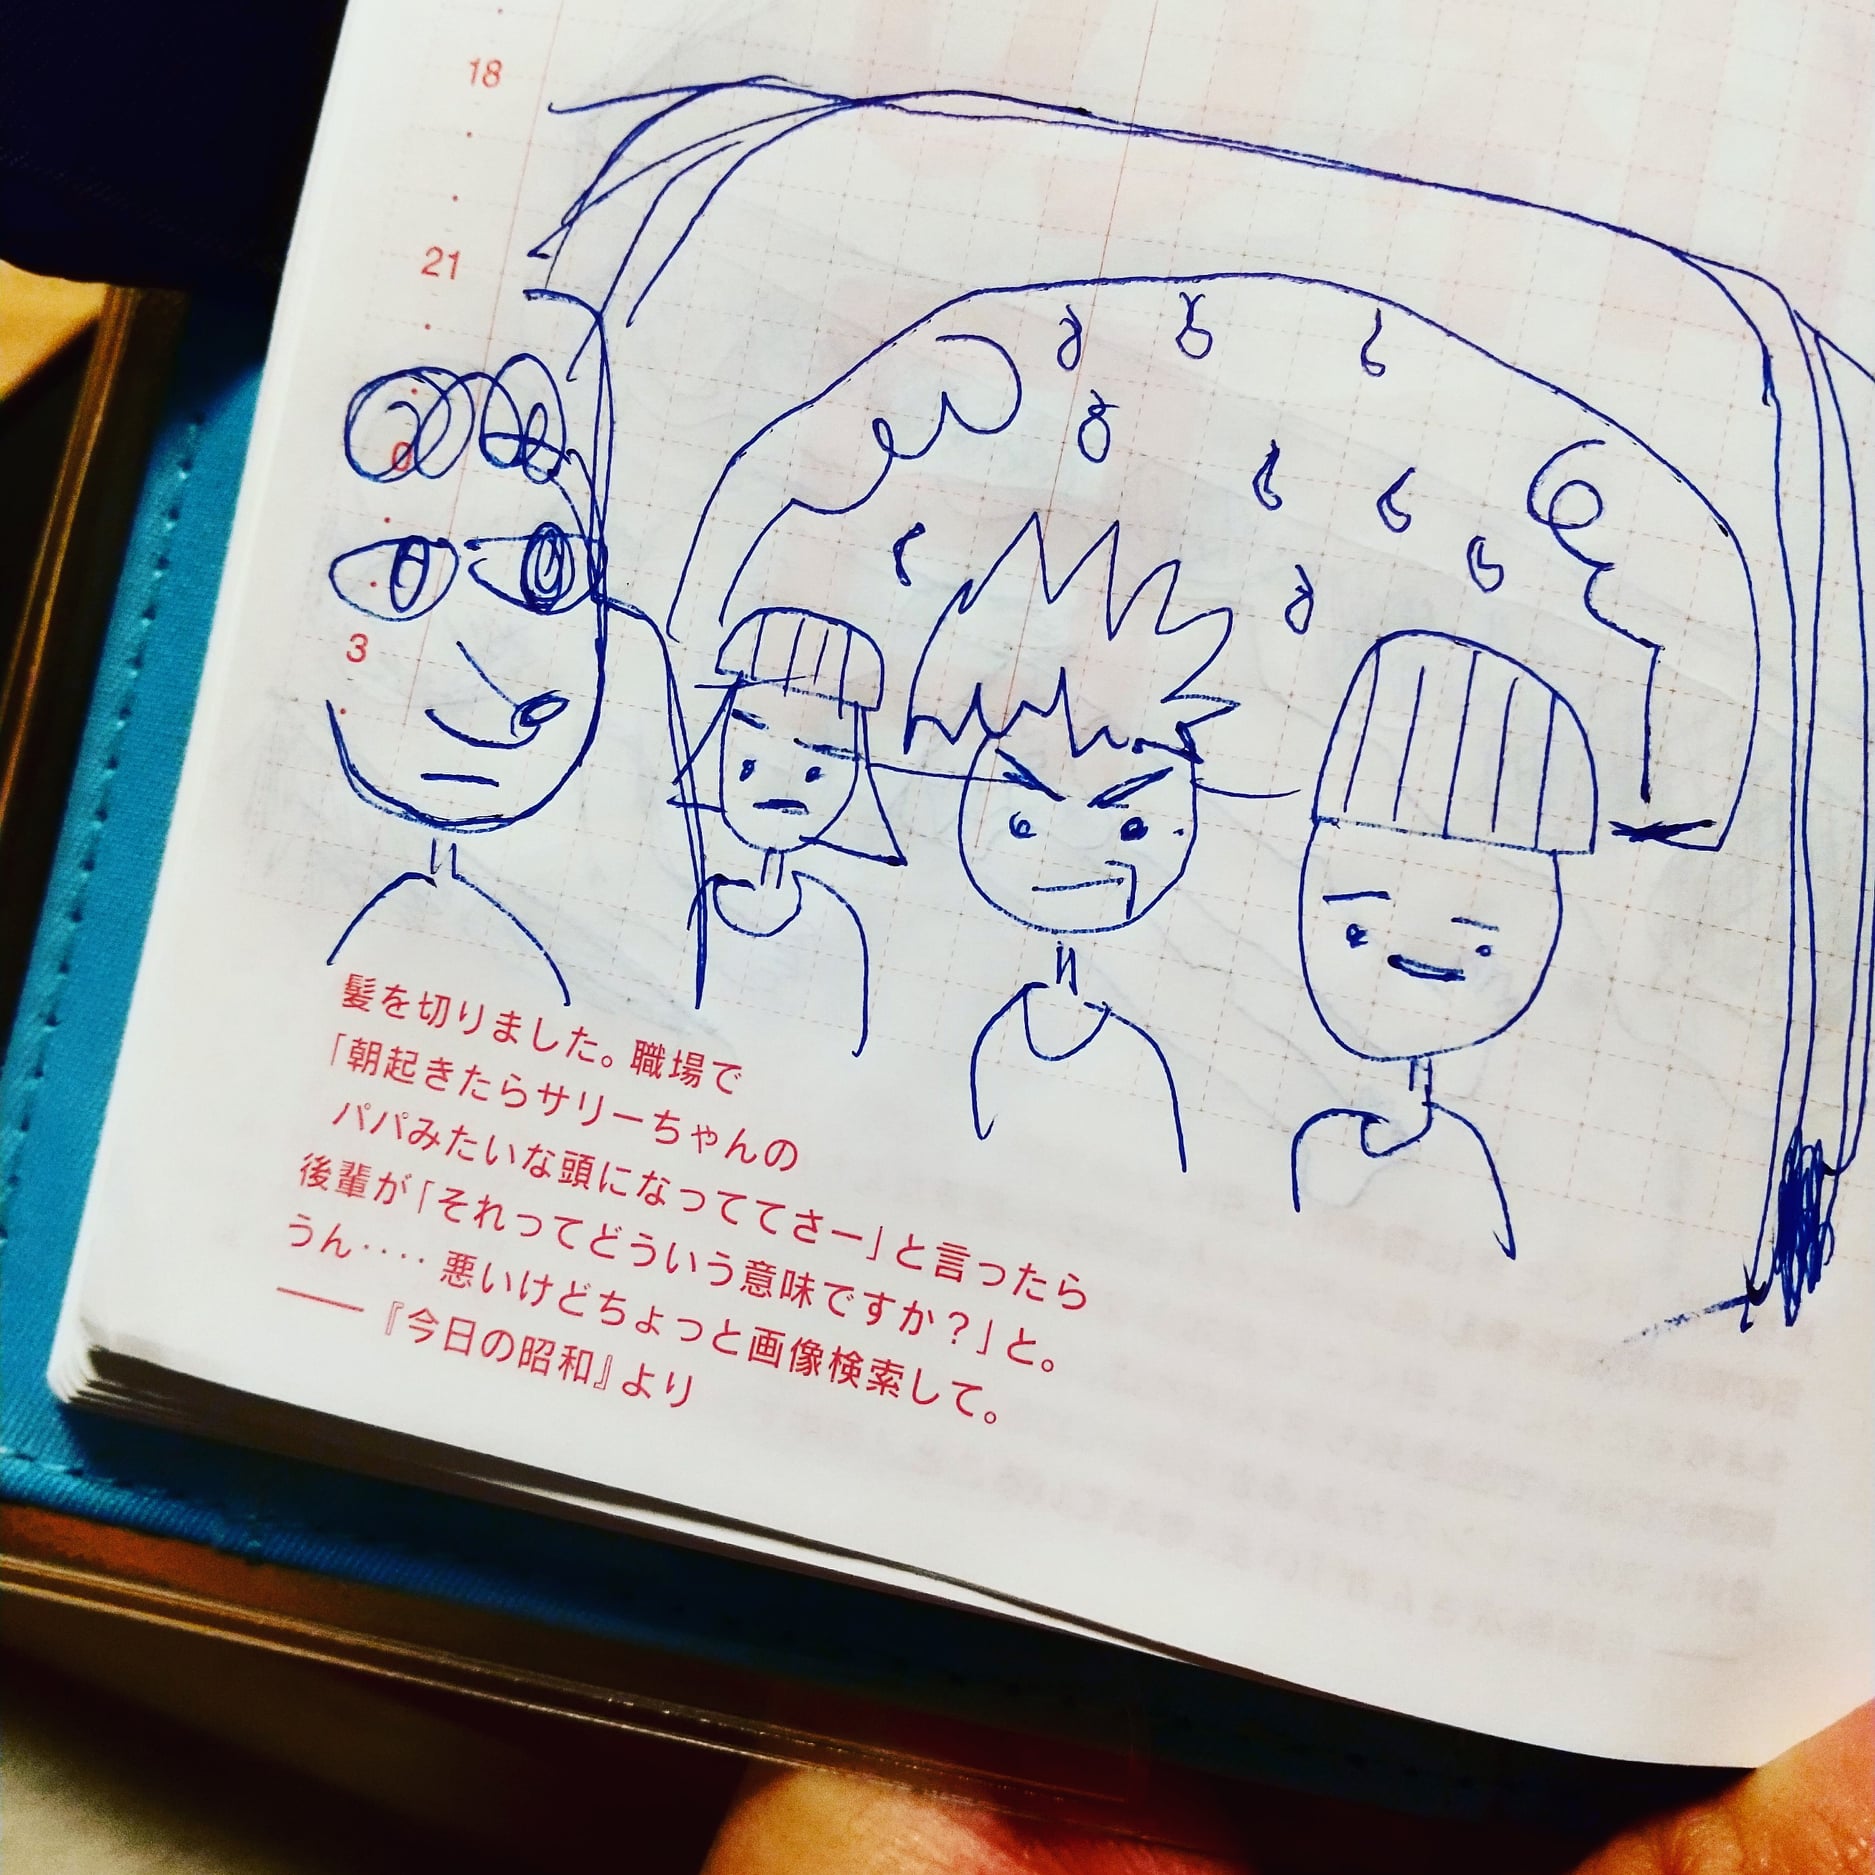 18
21
0
3
髪を切りました。職場で
「朝起きたらサリーちゃんの
パパみたいな頭になっててさー」と言ったら
後輩が「それってどういう意味ですか？」と。
うん‥‥悪いけどちょっと画像検索して。
――『今日の昭和』より